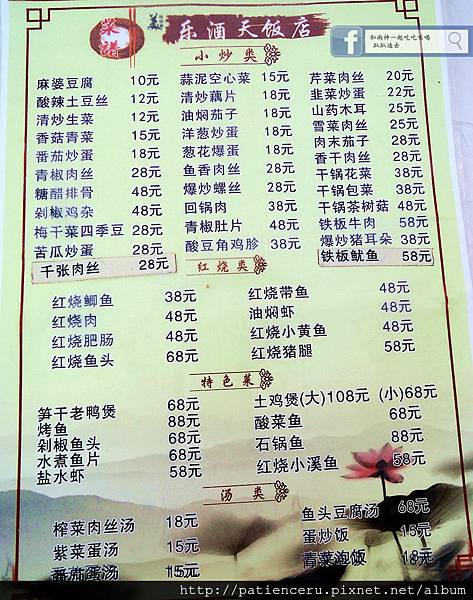 菜譜
乐酒天饭店
和雨神一起吃吃喝喝
趴趴造去
小炒类
麻婆豆腐 10元
酸辣土豆丝 12元
清炒生菜 12元
香菇青菜 15元
番茄炒蛋 18元
青椒肉丝 28元
糖醋排骨 48元
剁椒鸡杂 48元
梅干菜四季豆 28元
苦瓜炒蛋 28元
千张肉丝 28元
蒜泥空心菜 15元
清炒藕片 18元
油焖茄子 18元
洋葱炒蛋 18元
葱花爆蛋 18元
鱼香肉丝 28元
爆炒螺丝 28元
回锅肉 38元
青椒肚片 48元
酸豆角鸡胗 38元
芹菜肉丝 20元
韭菜炒蛋 22元
山药木耳 25元
雪菜肉丝 25元
肉末茄子 28元
香干肉丝 28元
干锅花菜 38元
干锅包菜 38元
干锅茶树菇 48元
铁板牛肉 58元
爆炒猪耳朵 38元
铁板鱿鱼 58元
红烧类
红烧鲫鱼 38元
红烧肉 48元
红烧肥肠 48元
红烧鱼头 68元
红烧带鱼 48元
油焖虾 48元
红烧小黄鱼 48元
红烧猪腿 58元
特色菜
笋干老鸭煲 68元
烤鱼 88元
剁椒鱼头 68元
水煮鱼片 68元
盐水虾 58元
土鸡煲(大)108元 (小)68元
酸菜鱼 68元
石锅鱼 88元
红烧小溪鱼 58元
汤类
榨菜肉丝汤 18元
紫菜蛋汤 15元
番茄蛋汤 15元
鱼头豆腐汤 68元
蛋炒饭 15元
青菜泡饭 18元
http://patienceru.pixnet.net/album